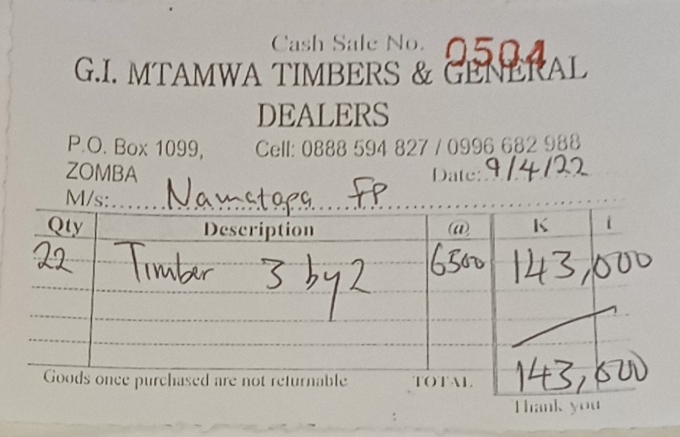 Cash Sale No. 0504
G.I. MTAMWA TIMBERS & GENERAL
DEALERS
P.O. Box 1099, Cell: 0888 594 827 / 0996 682 988
ZOMBA Date: 9/4/22
M/s: Namatapa FP
Qty Description @ K t
22 Timber 3 by 2 6500 143,000
Goods once purchased are not returnable TOTAL 143,000
Thank you